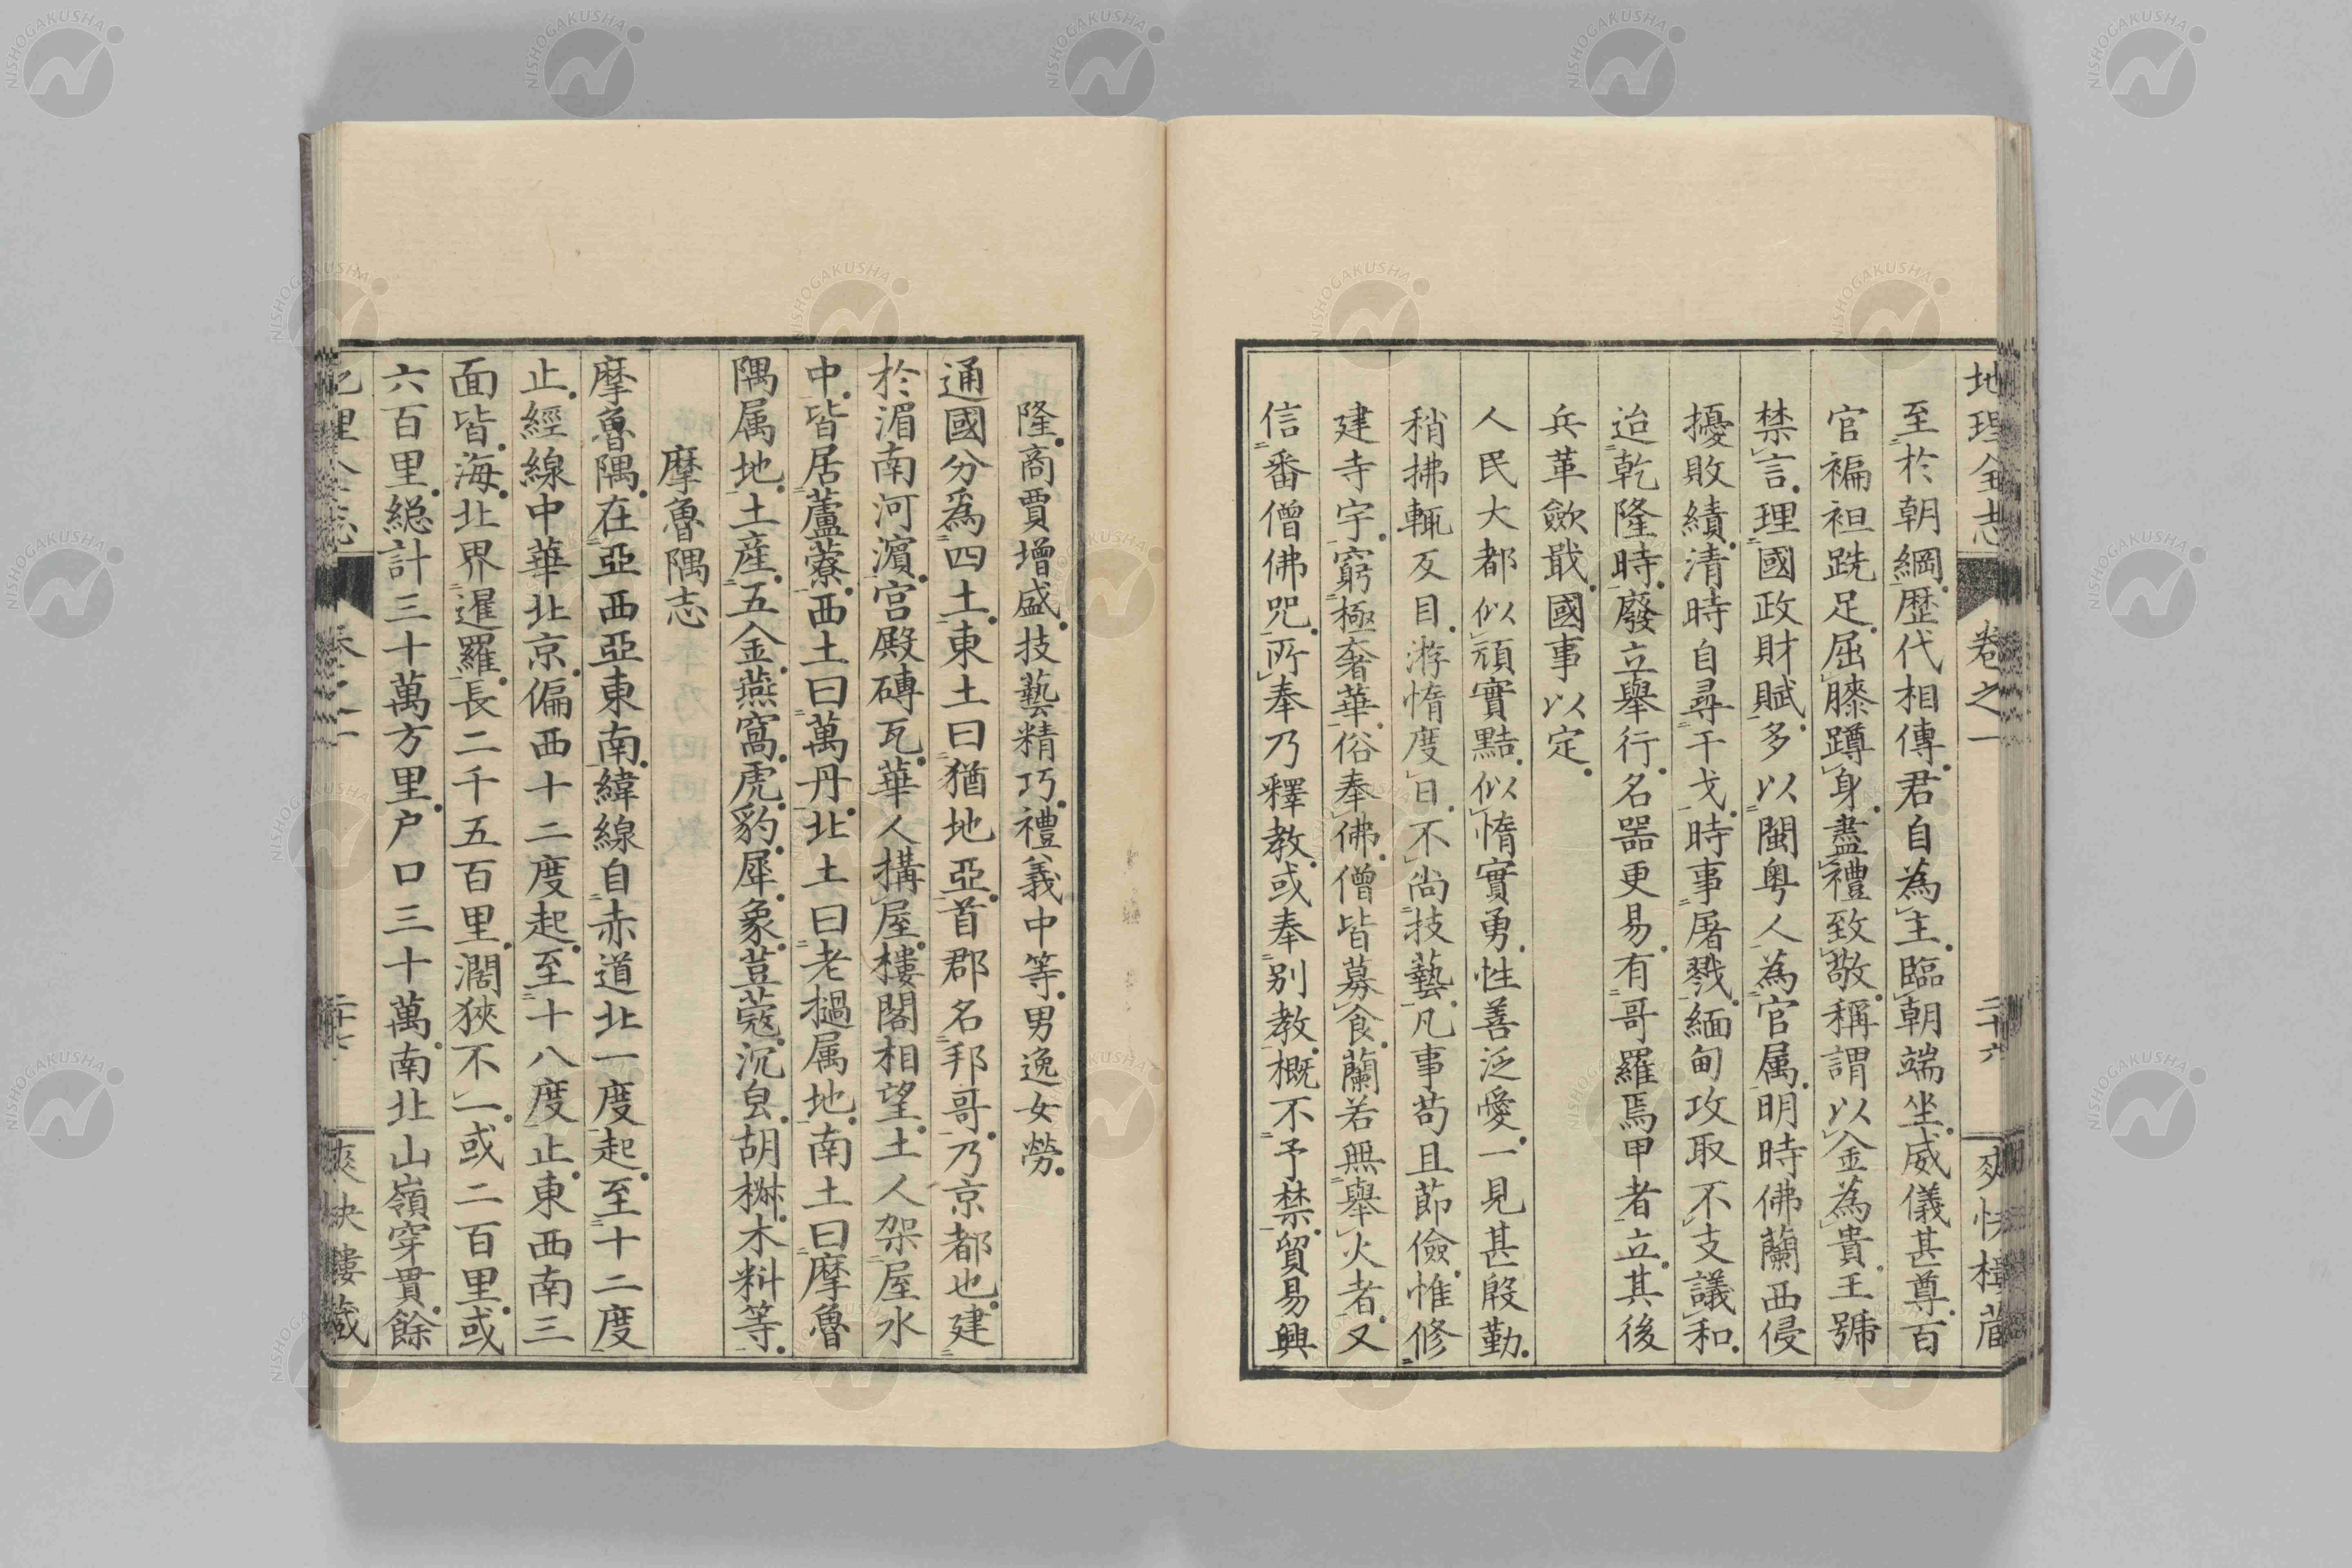 地理全志 卷之一 二十六 爽快樓藏
至於朝綱歷代相傳君自為主臨朝端坐威儀甚尊百
官褊袒跣足屈膝蹲身盡禮致敬稱謂以金為貴王號
禁言理國政財賦多以閩粤人為官属明時佛蘭西侵
擾敗績清時自尋干戈時事屠戮緬甸攻取不支議和
迨乾隆時廢立舉行名噐更易有哥羅焉甲者立其後
兵革歛戢國事以定
人民大都似頑實黠似惰實勇性善泛愛一見甚殷勤
稍拂輒反目游惰度日不尚技藝凡事苟且節儉惟修
建寺宇窮極奢華俗奉佛僧皆募食蘭若無舉火者又
信番僧佛咒所奉乃釋教或奉別教概不予禁貿易興
隆商賈增盛技藝精巧禮義中等男逸女勞
通國分爲四土東土曰猶地亞首郡名邦哥乃京都也建
於湄南河濵宫殿磚瓦華人搆屋樓閣相望土人架屋水
中皆居蘆藔西土曰萬丹北土曰老撾属地南土曰摩魯
隅属地土産五金燕窩虎豹犀象荳蔻沉皀胡椒木料等
摩魯隅志
摩魯隅在亞西亞東南緯線自赤道北一度起至十二度
止經線中華北京偏西十二度起至十八度止東西南三
面皆海北界暹羅長二千五百里濶狹不一或二百里或
六百里総計三十萬方里户口三十萬南北山嶺穿貫餘
地理全志 卷之一 二十七 爽快樓藏